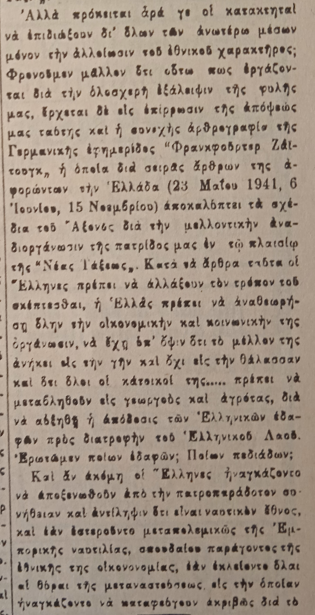 Ἀλλὰ πρόκειται ἆρά γε οἱ κατακτηταὶ
νὰ ἐπιδιώξουν δι' ὅλων τῶν ἀνωτέρω μέσων
μόνον τὴν ἀλλοίωσιν τοῦ ἐθνικοῦ χαρακτῆρος;
Φρονοῦμεν μᾶλλον ὅτι οὕτω πως ἐργάζον-
ται διὰ τὴν ὁλοσχερῆ ἐξάλειψιν τῆς φυλῆς
μας, ἔρχεται δὲ εἰς ἐπίρρωσιν τῆς ἀπόψεώς
μας ταύτης καὶ ἡ συνεχὴς ἀρθρογραφία τῆς
Γερμανικῆς ἐφημερίδος "Φρανκφοῦρτερ Ζάϊ-
τουγκ„ ἡ ὁποία διὰ σειρᾶς ἄρθρων της ἀ-
φορώντων τὴν Ἑλλάδα (23 Μαΐου 1941, 6
Ἰουνίου, 15 Νοεμβρίου) ἀποκαλύπτει τὰ σχέ-
δια τοῦ Ἄξονος διὰ τὴν μελλοντικὴν ἀνα-
διοργάνωσιν τῆς πατρίδος μας ἐν τῷ πλαισίῳ
τῆς "Νέας Τάξεως„. Κατὰ τὰ ἄρθρα ταῦτα οἱ
Ἕλληνες πρέπει νὰ ἀλλάξουν τὸν τρόπον τοῦ
σκέπτεσθαι, ἡ Ἑλλὰς πρέπει νὰ ἀναθεωρή-
σῃ ὅλην τὴν οἰκονομικὴν καὶ κοινωνικήν της
ὀργάνωσιν, νὰ ἔχῃ ὑπ' ὄψιν ὅτι τὸ μέλλον της
ἀνήκει εἰς τὴν γῆν καὶ ὄχι εἰς τὴν θάλασσαν
καὶ ὅτι ὅλοι οἱ κάτοικοί της..... πρέπει νὰ
μεταβληθοῦν εἰς γεωργοὺς καὶ ἀγρότας, διὰ
νὰ αὐξηθῇ ἡ ἀπόδοσις τῶν Ἑλληνικῶν ἐδα-
φῶν πρὸς διατροφὴν τοῦ Ἑλληνικοῦ Λαοῦ.
Ἐρωτῶμεν ποίων ἐδαφῶν; Ποίων πεδιάδων;
Καὶ ἂν ἀκόμη οἱ Ἕλληνες ἠναγκάζοντο
νὰ ἀποξενωθοῦν ἀπὸ τὴν πατροπαράδοτον συ-
νήθειαν καὶ ἀντίληψιν ὅτι εἶναι ναυτικὸν ἔθνος,
καὶ ἐὰν ἐστεροῦντο μεταπολεμικῶς τῆς Ἐμ-
πορικῆς ναυτιλίας, σπουδαίου παράγοντος τῆς
ἐθνικῆς της οἰκονομίας, ἐὰν ἐκλείοντο ὅλαι
αἱ θύραι τῆς μεταναστεύσεως εἰς τὴν ὁποίαν
ἠναγκάζοντο νὰ καταφεύγουν ἀκριβῶς διὰ τὸ